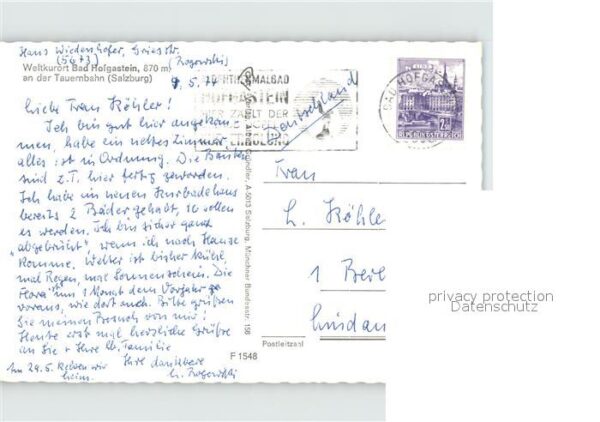 Haus Wiedenhofer, Griesstr.
(5673) (Rogowski)
Weltkurort Bad Hofgastein, 870 m
an der Tauernbahn (Salzburg)
9.5.74
THERMALBAD
HOFGASTEIN
ZÄHLT DER
ERHOLUNG
Deutschland
BAD HOFGASTEIN
REPUBLIK ÖSTERREICH
Liebe Frau Köhler!
Ich bin gut hier angekom-
men, habe ein nettes Zimmer,
alles ist in Ordnung. Die Bauten
sind z.T. hier fertig geworden.
Ich habe im neuen Kurbadehaus
bereits 2 Bäder gehabt, 10 sollen
es werden. Ich bin sicher ganz
"abgebrüht" wenn ich nach Hause
komme. Wetter ist bisher kühl,
mal Regen, mal Sonnenschein. Die
Flora um 1 Monat dem Vorjahr
voraus, wie dort auch. Bitte grüßen
Sie meinen Besuch von mir!
Heute erst mal herzliche Grüße
an Sie + Ihre lb. Familie
Ihre dankbare
Am 29.5. kehren wir
heim. L. Rogowski
Frau
L. Köhle
1 Berl
Lindau
Postleitzahl
F 1548
Gründler, A 5013 Salzburg, Münchner Bundesstr. 156
privacy protection
Datenschutz